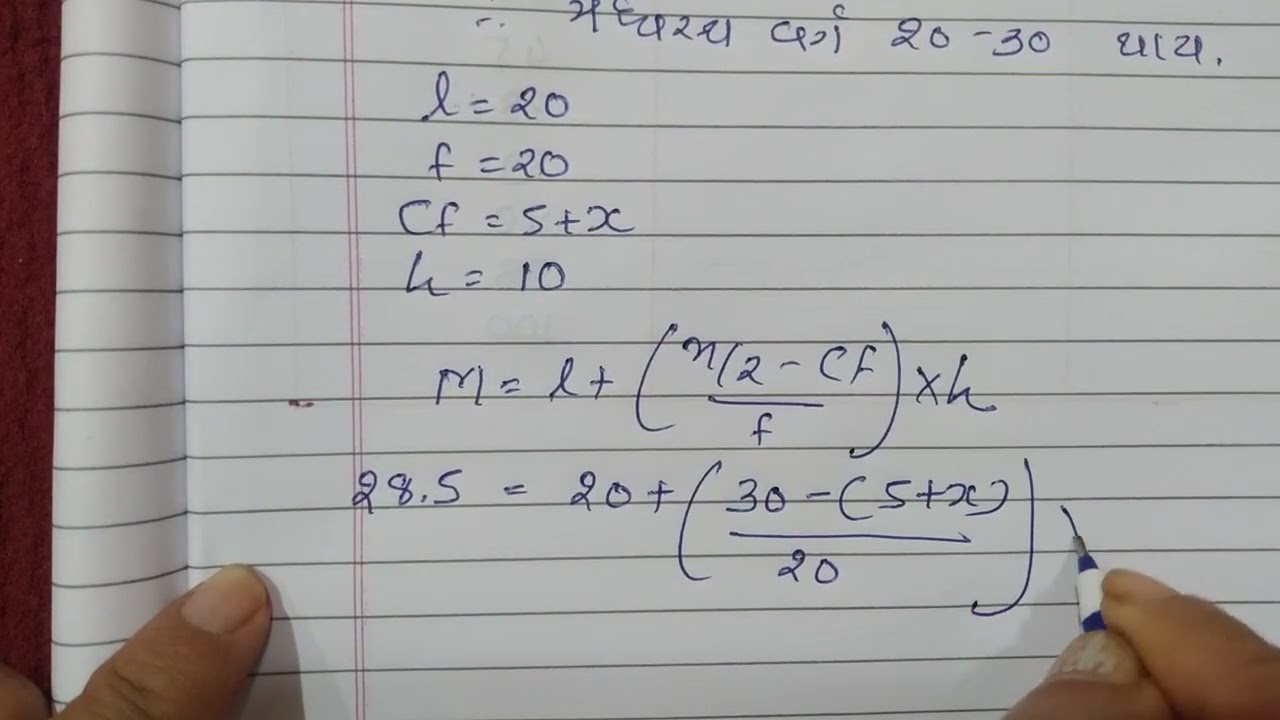 ∴ મધ્યસ્થ વર્ગ 20-30 થાય.
l = 20
f = 20
Cf = 5+x
h = 10
M = l + ( n/2 - Cf / f ) × h
28.5 = 20 + ( 30 - (5+x) / 20 )